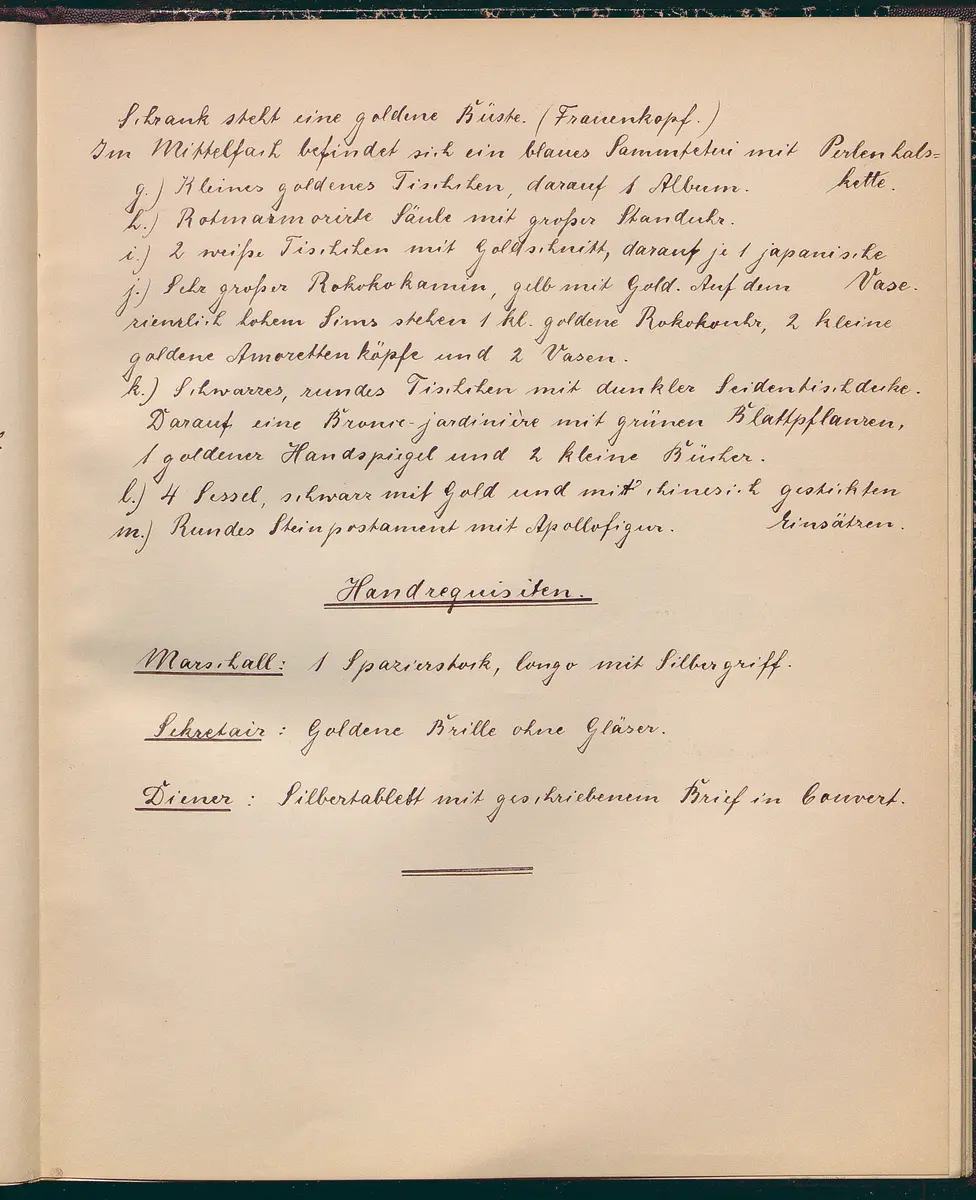 Schrank steht eine goldene Büste. (Frauenkopf.)
Im Mittelfach befindet sich ein blaues Sammtetui mit Perlenhals=
g.) Kleines goldenes Tischchen, darauf 1 Album. kette.
h.) Rotmarmorirte Säule mit großer Standuhr.
i.) 2 weiße Tischchen mit Goldschnitt, darauf je 1 japanische
j.) Sehr großer Rokokokamin, gelb mit Gold. Auf dem Vase.
zienrlich hohem Sims stehen 1 kl. goldene Rokokouhr, 2 kleine
goldene Amorettenköpfe und 2 Vasen.
k.) Schwarzes, rundes Tischchen mit dunkler Seidentischdecke.
Darauf eine Bronce-jardinière mit grünen Blattpflanzen,
1 goldener Handspiegel und 2 kleine Bücher.
l.) 4 Sessel, schwarz mit Gold und mit chinesich gestickten
m.) Rundes Steinpostament mit Apollofigur. Einsätzen.
Handrequisiten.
Marschall: 1 Spazierstock, longo mit Silbergriff.
Sekretair: Goldene Brille ohne Gläser.
Diener: Silbertablett mit geschriebenem Brief in Couvert.